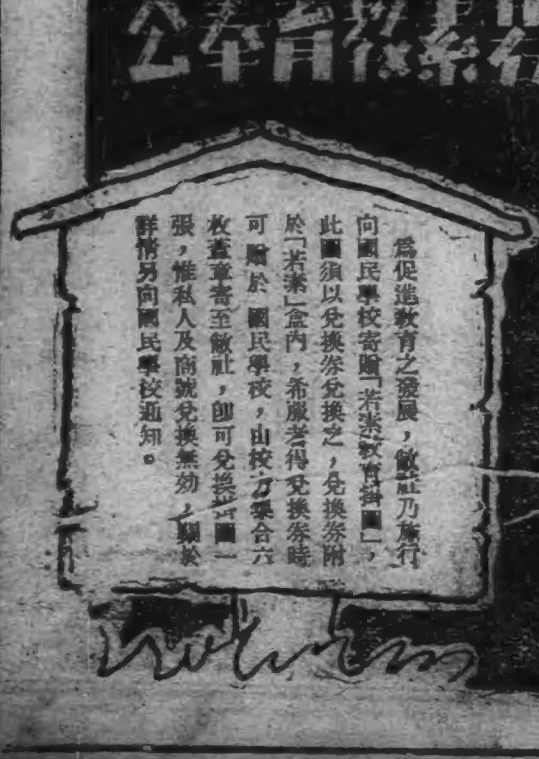 爲促進敎育之發展，敝社乃施行
向國民學校寄贈「若素敎育掛圖」，
此圖須以兌換券兌換之，兌換券附
於「若素」盒內，希服者得兌換券時
可贈於國民學校，由校方集合六
枚蓋章寄至敝社，卽可兌換掛圖一
張，惟私人及商號兌換無効，關於
詳情另向國民學校通知。